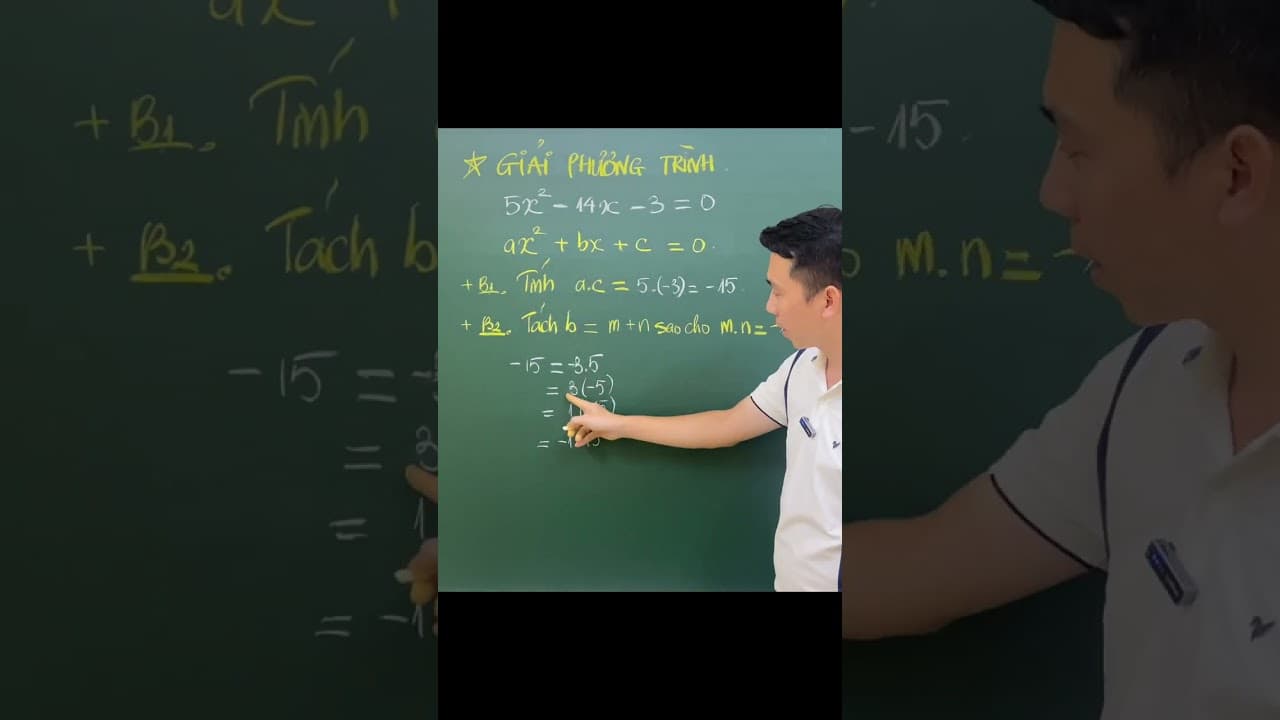 ★ GIẢI PHƯƠNG TRÌNH.
5x² - 14x - 3 = 0
ax² + bx + c = 0.
+ B1. Tính a.c = 5.(-3) = -15.
+ B2. Tách b = m + n sao cho m.n = -
-15 = -3.5
= 3(-5)
= 1
= -1